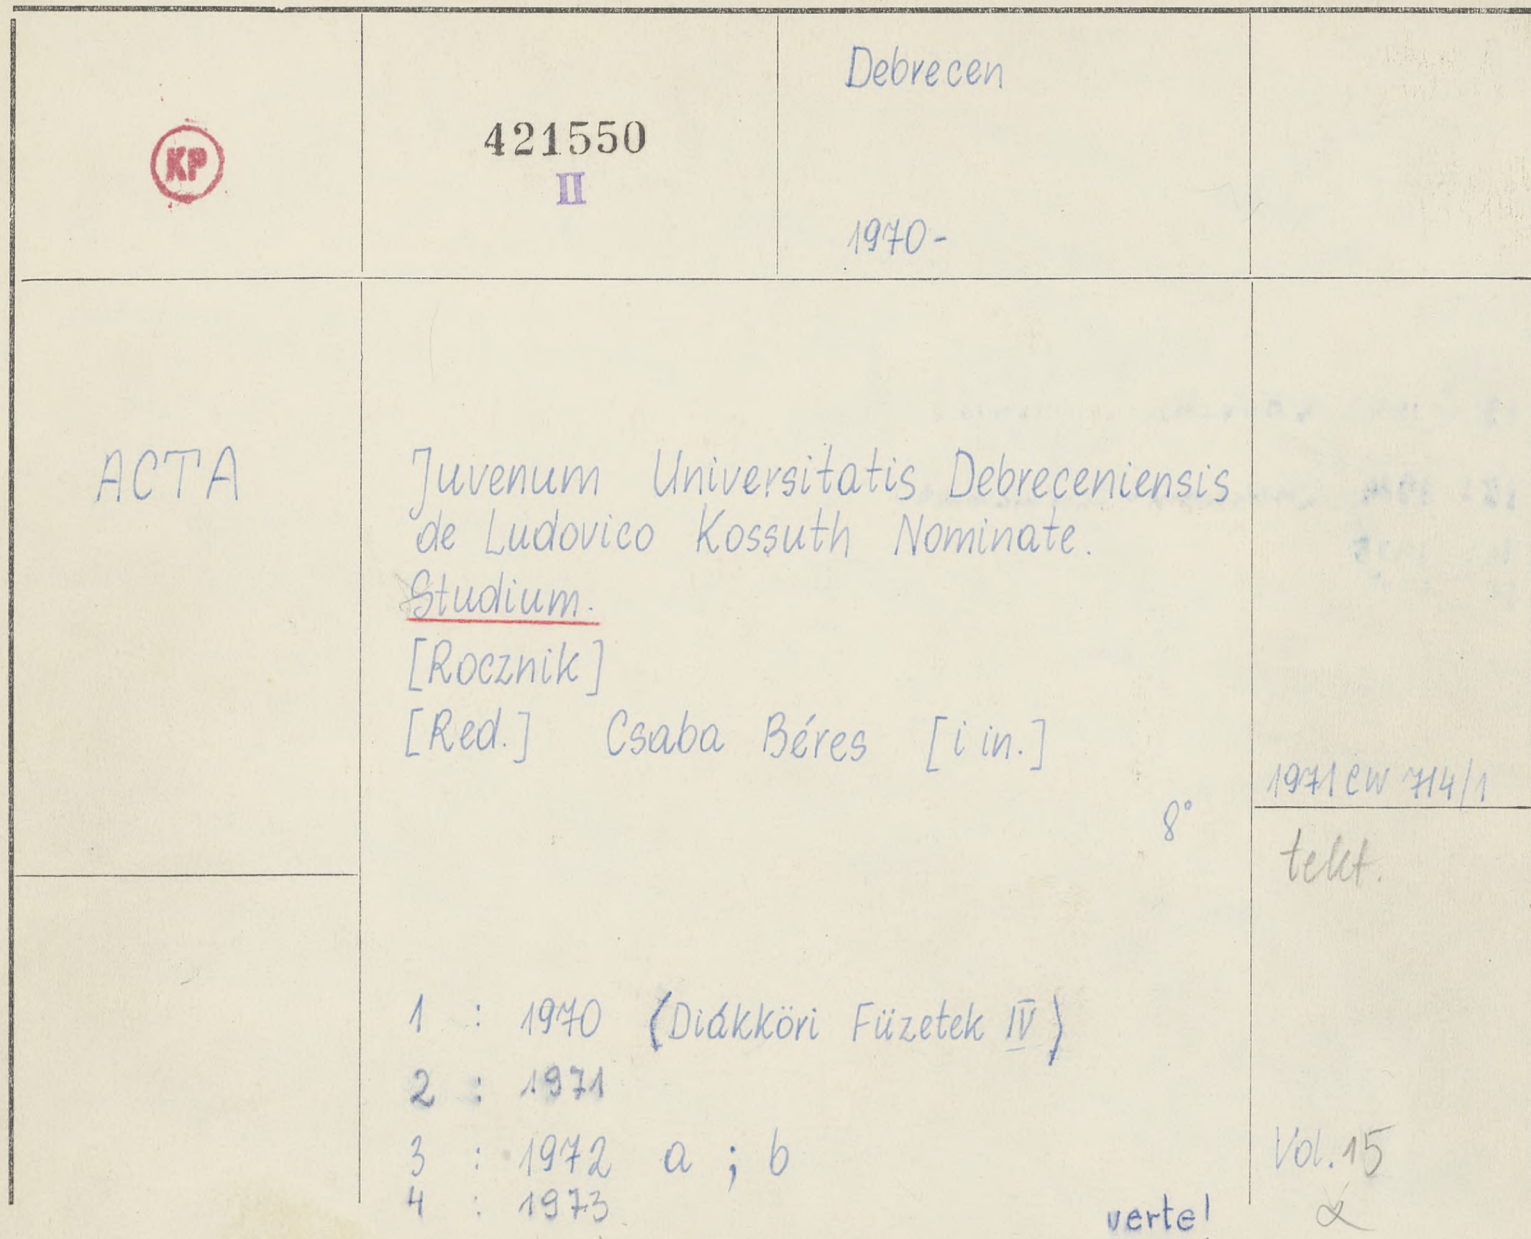 KP
421550
II
Debrecen
1970-
ACTA
Juvenum Universitatis Debreceniensis
de Ludovico Kossuth Nominate.
Studium.
[Rocznik]
[Red.] Csaba Béres [i in.]
8°
1971 CW 714/1
tekt.
1 : 1970 (Diákköri Füzetek IV)
2 : 1971
3 : 1972 a ; b
4 : 1973
Vol. 15
verte!